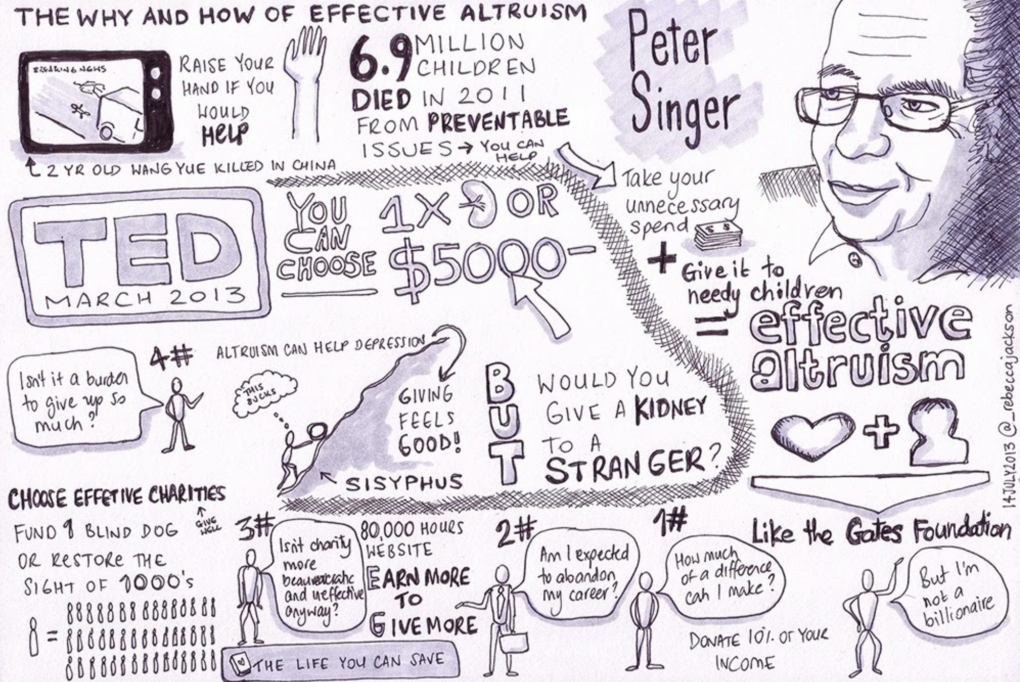 THE WHY AND HOW OF EFFECTIVE ALTRUISM
BREAKING NEWS
RAISE YOUR
HAND IF YOU
WOULD
HELP
2 YR OLD WANG YUE KILLED IN CHINA
6.9 MILLION
CHILDREN
DIED IN 2011
FROM PREVENTABLE
ISSUES → YOU CAN
HELP
Peter
Singer
Take your
unnecessary
spend
+ Give it to
needy children
= effective
altruism
+
Like the Gates Foundation
But I'm
not a
billionaire
1#
How much
of a difference
can I make?
DONATE 10% OF YOUR
INCOME
2#
Am I expected
to abandon
my career?
80,000 HOURS
WEBSITE
EARN MORE
TO
GIVE MORE
3#
Isn't charity
more
beaureacratic
and ineffective
anyway?
THE LIFE YOU CAN SAVE
CHOOSE EFFETIVE CHARITIES
GIVE
WELL
FUND 1 BLIND DOG
OR RESTORE THE
SIGHT OF 1000's
=
4#
Isn't it a burden
to give up so
much?
ALTRUISM CAN HELP DEPRESSION
THIS
SUCKS
GIVING
FEELS
GOOD!
SISYPHUS
TED
MARCH 2013
YOU
CAN
CHOOSE
1X OR
$5000-
BUT
WOULD YOU
GIVE A KIDNEY
TO A
STRANGER?
14JULY2013 @_rebeccajackson